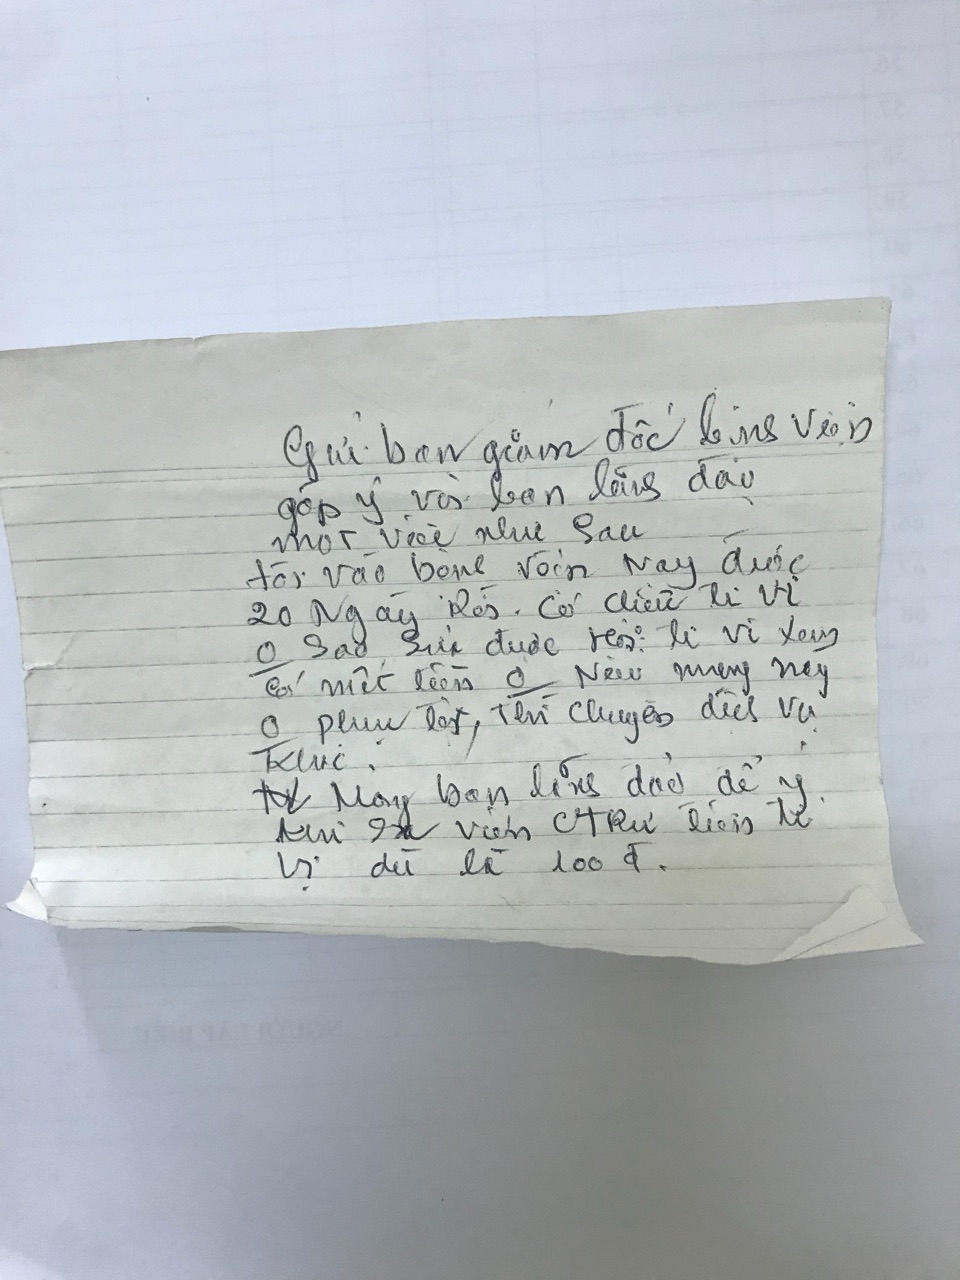 Gửi ban giám đốc bệng viện
góp ý với ban lãng đạo
một việc như sau
tôi vào bệng viện nay được
20 ngày rồi. Có chiếc ti vi
0 sao sửa được rồi ti vi xem
có một lần 0 Nếu mạng này
0 phục tốt, thì chuyển dịch vụ
khác.
Mong ban lãng đạo để ý.
khi ra viện trừ tiền ti
vi dù là 100 đ.